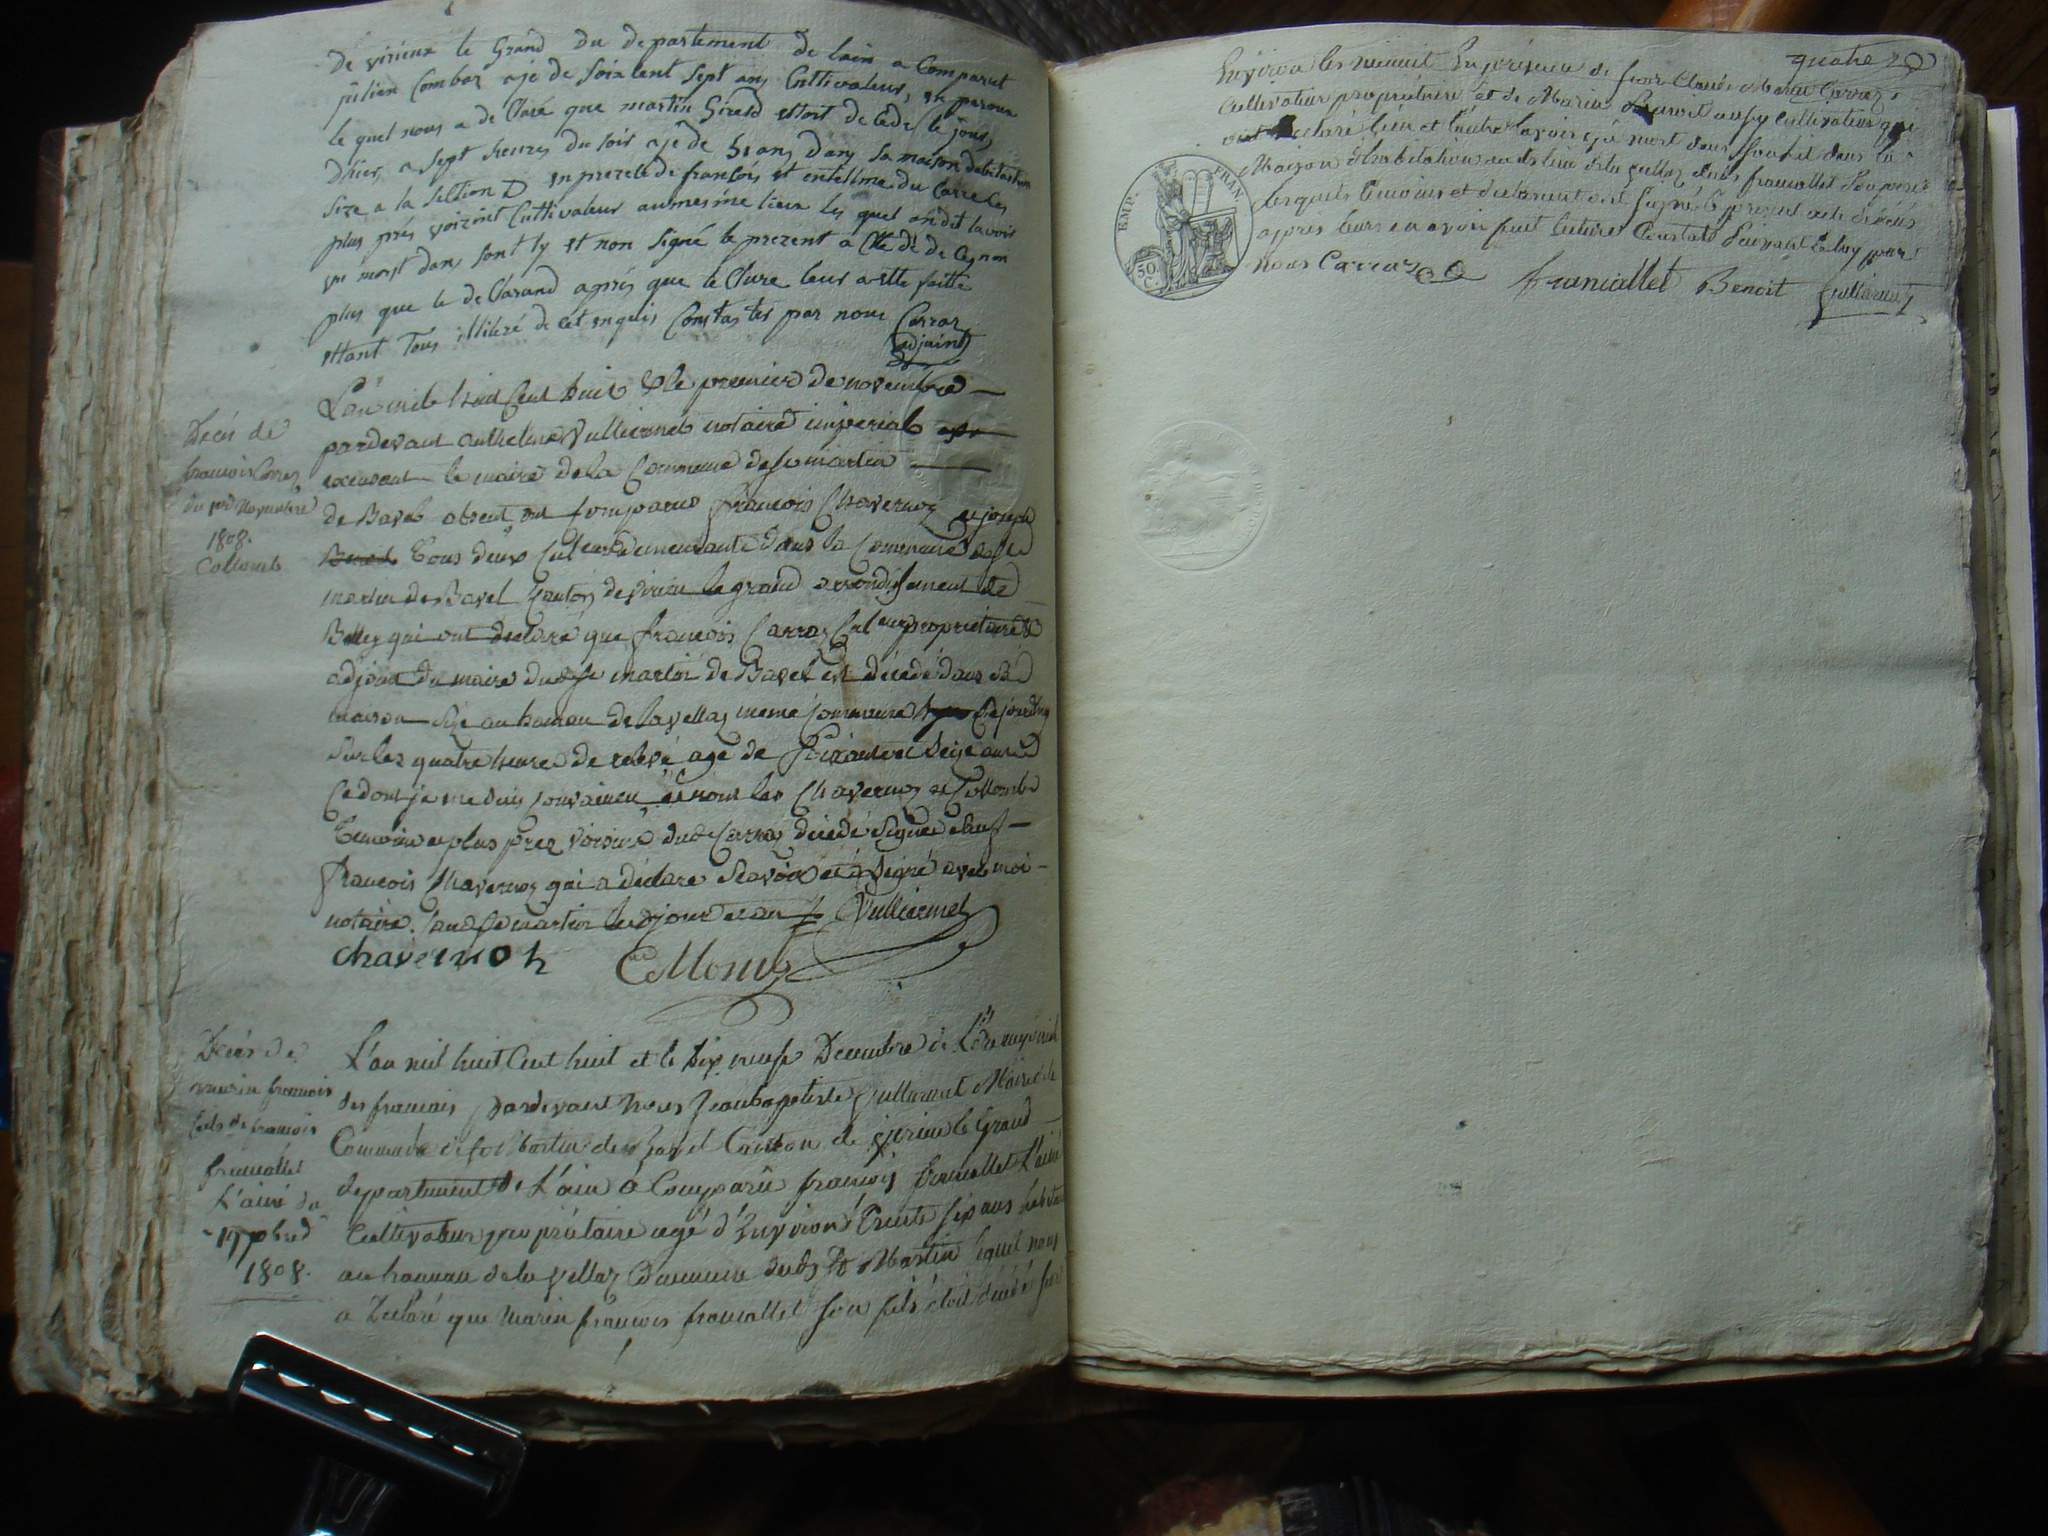 De virieux le Grand du departement de lain a Comparut
julien Combaz aje de soixzent sept ans Cultivateur, en persone
le quel nous a de Claré que martin Girerd est mort de Cede le jour
D'hier, a sept heures du soir ajé de 51 ans dans sa maison dabitastion
size a la section D en prezele de francois et entelme du Carre les
plus prés voizint Cultivateur aumesme lieux les quel on dit lavoir
vu mort dans sont ly et non Signé le prezent a Cte dé de Ces non
plus que le de Clarand aprés que le Cture leur a ette faitte
ettant Tous illiteré de cet enquis Constastes par nous Carraz
adjoint
Décès de
francois Carraz
du 1er Novembre
1808.
Collomb
L'an mile huit Cent huit & le premier de novembre
pardevant anthelme Vulliermet notaire imperial
exersant le maire de la Commune de st martin
de Bavel absent ont Comparus francois Chavernoz et joseph
tous deux Culeurs demeurants dans la Commune de st
martin de Bavel Canton de virieu le grand arrondissement de
Belley qui ont declaré que francois Carraz Culeur propriétaire &
adjoint du maire dud. st martin de Bavel est décédé dans sa
maison size au hameau de la vellaz meme commune cejourdhuy
sur les quatre heures de relevé agé de soixante seize ans
Ce dont je me suis convaincu et nous les Chavernoz et Collomb
temoins et plus prez voisins dud. Carraz décédé signés
francois Chavernoz qui a déclaré scavoir et a signé avec moi
notaire. aud. st martin les jour et an Vulliermet
chavernoz Collomb
Décès de
marin francois
fils de francois
francallet
L'ainé du
19 xbre
1808.
L'an mil huit Cent huit et le dix neuf Decembre de L'Ere
des francais pardevant Nous Jeanbaptiste Vulliermet Maire de la
Commune de st Martin de Bavel Canton de virieu le Grand
departement de L'ain a Comparû francois francallet L'ainé
Cultivateur propriétaire agé d'Environ Trente six ans habitant
au hameau de la vellaz Commune dud. St Martin lequel nous
a Declaré que Marin francois francallet son fils étoit décédé
quatre
Environ les minuit En présence de sieur Claude Carraz
Cultivateur propriétaire et de Marin Benoit aussy cultivateur qui
ont declaré l'un et l'autre lavoir vû mort dans son lit dans la
Maison d'habitation au dt lieu de la vellaz dudt francallet Son pere
lesquels temoins et declarant ont signé le present acte de décès
après leurs en avoir fait lecture Constaté Suivant la loy par
nous Carraz francallet Benoit Vulliermet
EMP. FRAN.
50
C.